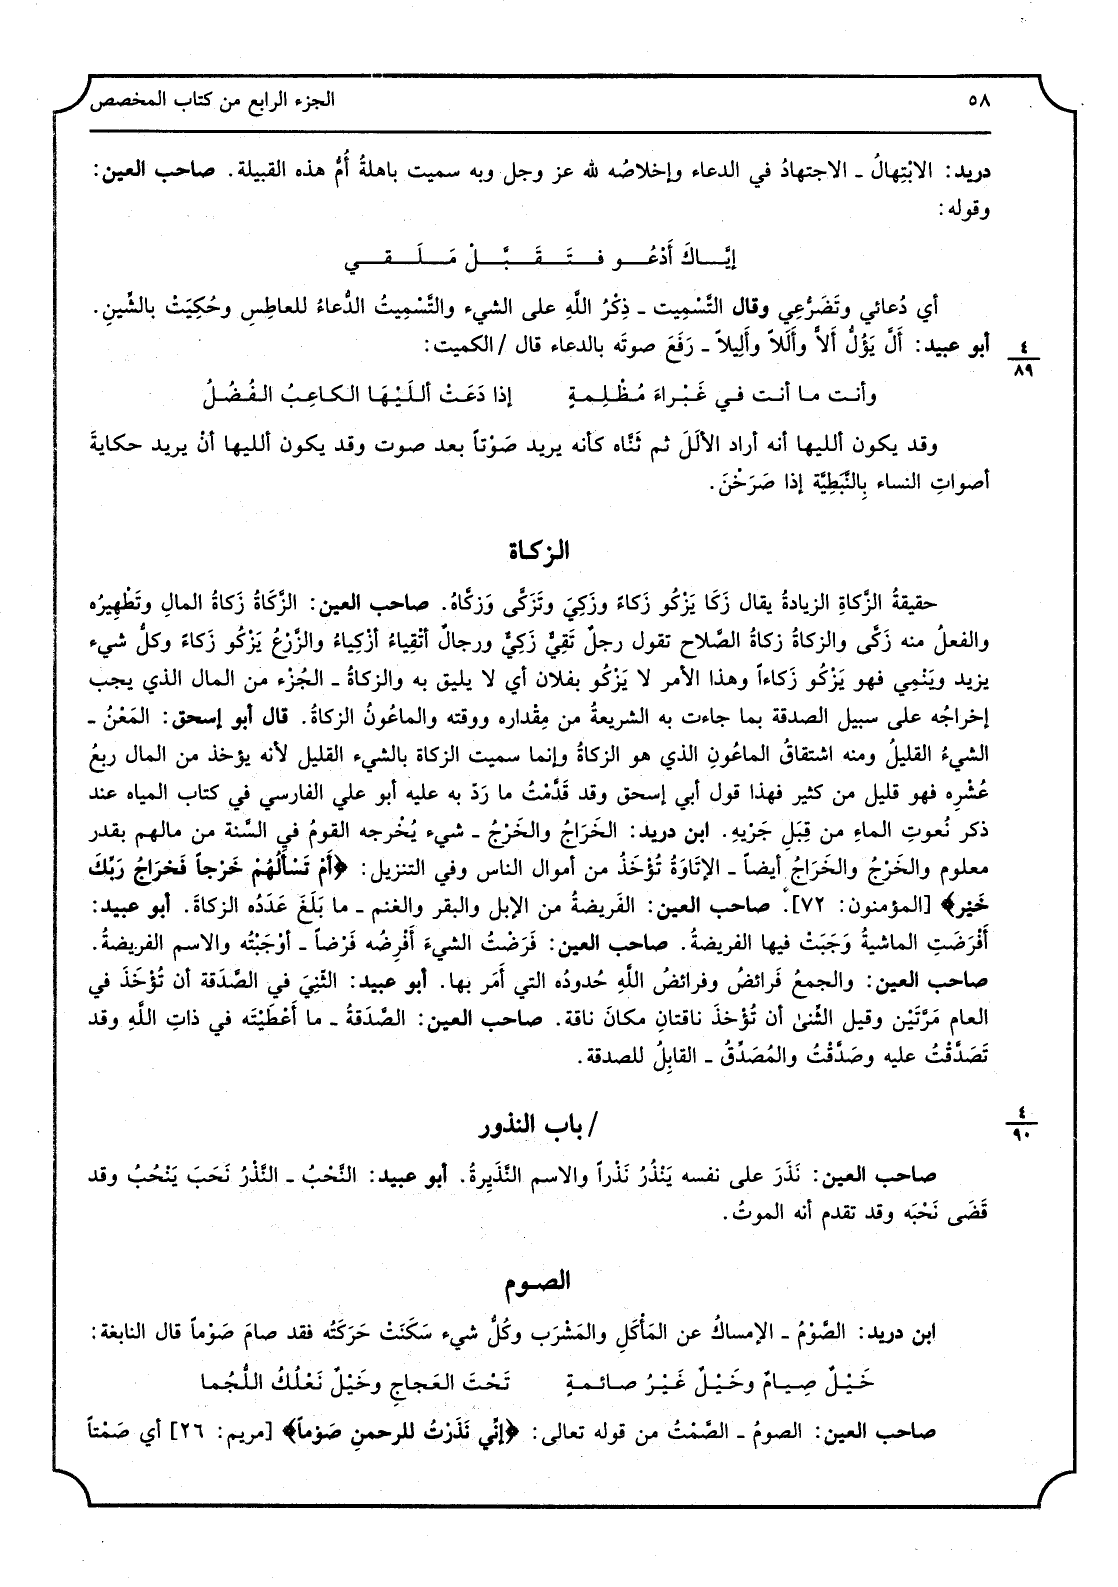 ٥٨ الجزء الرابع من كتاب المخصص
دريد: الابْتِهالُ ـ الاجتهادُ في الدعاء وإخلاصُه لله عز وجل وبه سميت باهلةُ أُمُّ هذه القبيلة. صاحب العين:
وقوله:
إيَّـــاكَ أَدْعُـــو فـــتَـــقَـــبَّـــلْ مَـــلَـــقـــي
أي دُعائي وتَضَرُّعِي وقال التَّسْمِيت ـ ذِكْرُ اللَّهِ على الشيء والتَّسْمِيتُ الدُّعاءُ للعاطِسِ وحُكِيَتْ بالشِّينِ.
٤
٨٩
أبو عبيد: أَلَّ يَؤُلُّ أَلاًّ وأَلَلاً وأَلِيلاً ـ رَفَعَ صوتَه بالدعاء قال / الكميت:
وأنـت مـا أنت فـي غَبْـراءَ مُـظْـلِـمةٍ إذا دَعَـتْ أللَيْـهَـا الـكـاعِـبُ الـفُـضُـلُ
وقد يكون ألليها أنه أراد الألَلَ ثم ثَنَّاه كأنه يريد صَوْتاً بعد صوت وقد يكون ألليها أنْ يريد حكايةَ
أصواتِ النساء بِالنَّبَطِيَّة إذا صَرَخْنَ.
الزكـاة
حقيقةُ الزَّكاةِ الزيادةُ يقال زَكَا يَزْكُو زَكاءً وزَكِيَ وتَزَكَّى وَزكَّاهُ. صاحب العين: الزَّكَاةُ زَكاةُ المال وتَطْهِيرُه
والفعلُ منه زَكَّى والزكاةُ زكاةُ الصَّلاح تقول رجلٌ تَقِيٌّ زَكِيٌّ ورجالٌ أتْقِياءُ أزْكِياءُ والزَّرْعُ يَزْكُو زَكاءً وكلُّ شيء
يزيد ويَنْمِي فهو يَزْكُو زَكاءاً وهذا الأمر لا يَزْكُو بفلان أي لا يليق به والزكاةُ ـ الجُزْء من المال الذي يجب
إخراجُه على سبيل الصدقة بما جاءت به الشريعةُ من مِقْداره ووقته والماعُونُ الزكاةُ. قال أبو إسحق: المَعْنُ ـ
الشيءُ القليلُ ومنه اشتقاقُ الماعُونِ الذي هو الزكاةُ وإنما سميت الزكاة بالشيء القليل لأنه يؤخذ من المال ربعُ
عُشْرِه فهو قليل من كثير فهذا قول أبي إسحق وقد قَدَّمْتُ ما رَدّ به عليه أبو علي الفارسي في كتاب المياه عند
ذكر نُعوتِ الماءِ من قِبَلِ جَرْيِهِ. ابن دريد: الخَرَاجُ والخَرْجُ ـ شيء يُخْرجه القومُ في السَّنة من مالهم بقدر
معلوم والخَرْجُ والخَراجُ أيضاً ـ الإتَاوَةُ تُؤْخَذُ من أموال الناس وفي التنزيل: ﴿أَمْ تَسْأَلُهُمْ خَرْجاً فَخراجُ رَبِّكَ
خَيْر﴾ [المؤمنون: ٧٢]. صاحب العين: الفَريضةُ من الإبل والبقر والغنم ـ ما بَلَغَ عَدَدُه الزكاةَ. أبو عبيد:
أَفْرَضَتِ الماشيةُ وَجَبَتْ فيها الفريضةُ. صاحب العين: فَرَضْتُ الشيءَ أَفْرِضُه فَرْضاً ـ أوْجَبْتُه والاسم الفريضةُ.
صاحب العين: والجمعُ فَرائضُ وفرائضُ اللَّهِ حُدودُه التي أَمَر بها. أبو عبيد: الثِّنِيَ في الصَّدَقة أن تُؤْخَذَ في
العام مَرَّتَيْن وقيل الثِّنىٰ أن تُؤْخذَ ناقتانِ مكانَ ناقة. صاحب العين: الصَّدَقةُ ـ ما أَعْطَيْتَه في ذاتِ اللَّهِ وقد
تَصَدَّقْتُ عليه وصَدَّقْتُ والمُصَدِّقُ ـ القابِلُ للصدقة.
٤
٩٠
/ باب النذور
صاحب العين: نَذَرَ على نفسه يَنْذُرُ نَذْراً والاسم النَّذَيِرةُ. أبو عبيد: النَّحْبُ ـ النَّذْرُ نَحَبَ يَنْحُبُ وقد
قَضَى نَحْبَه وقد تقدم أنه الموتُ.
الصـوم
ابن دريد: الصَّوْمُ ـ الإمساكُ عن المَأْكَلِ والمَشْرَب وكُلُّ شيء سَكَنَتْ حَرَكَتُه فقد صامَ صَوْماً قال النابغة:
خَيْـلٌ صِيـامٌ وخَيْـلٌ غَيْـرُ صـائـمـةٍ تَحْتَ العَجاجِ وخَيْلٌ نَعْلُكُ اللُّجُما
صاحب العين: الصومُ ـ الصَّمْتُ من قوله تعالى: ﴿إنِّي نَذَرْتُ للرحمنِ صَوْماً﴾ [مريم: ٢٦] أي صَمْتاً